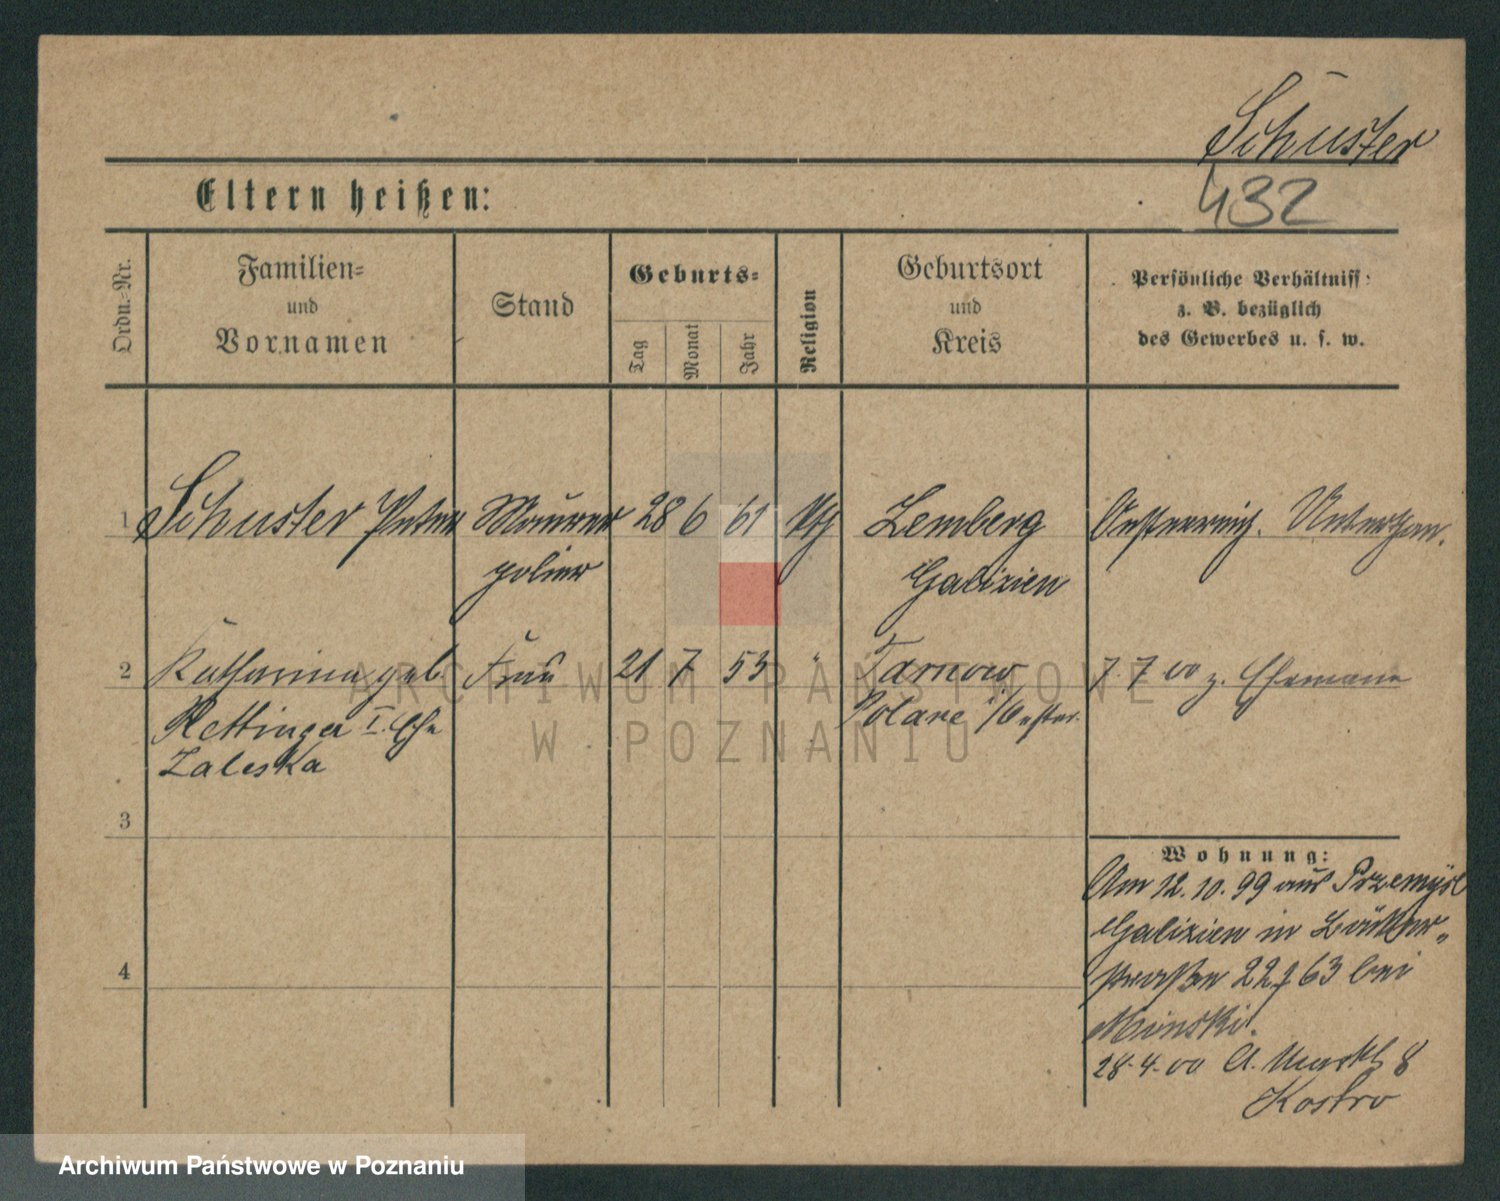 Schuster
432
Eltern heißen:
Ordn.-Nr.
Familien-
und
Vornamen
Stand
Geburts-
Tag
Monat
Jahr
Religion
Geburtsort
und
Kreis
Persönliche Verhältniss
z. B. bezüglich
des Gewerbes u. s. w.
1 Schuster Peter Maurer 28 6 61 kth Lemberg Oesterreich. Unterthan.
polier Galizien
2 Katharina geb. Frau 21 7 53 " Tarnow 7. 7 00 z. Ehemann
Rettinger I. Ehe
Zaleska
3
4
Wohnung:
Am 12. 10. 99 aus Przemysl
Galizien in
straße 22 63 bei
Minski.
28. 4. 00 A. Markt 8
Kostro
ARCHIWUM PAŃSTWOWE
W POZNANIU
Archiwum Państwowe w Poznaniu